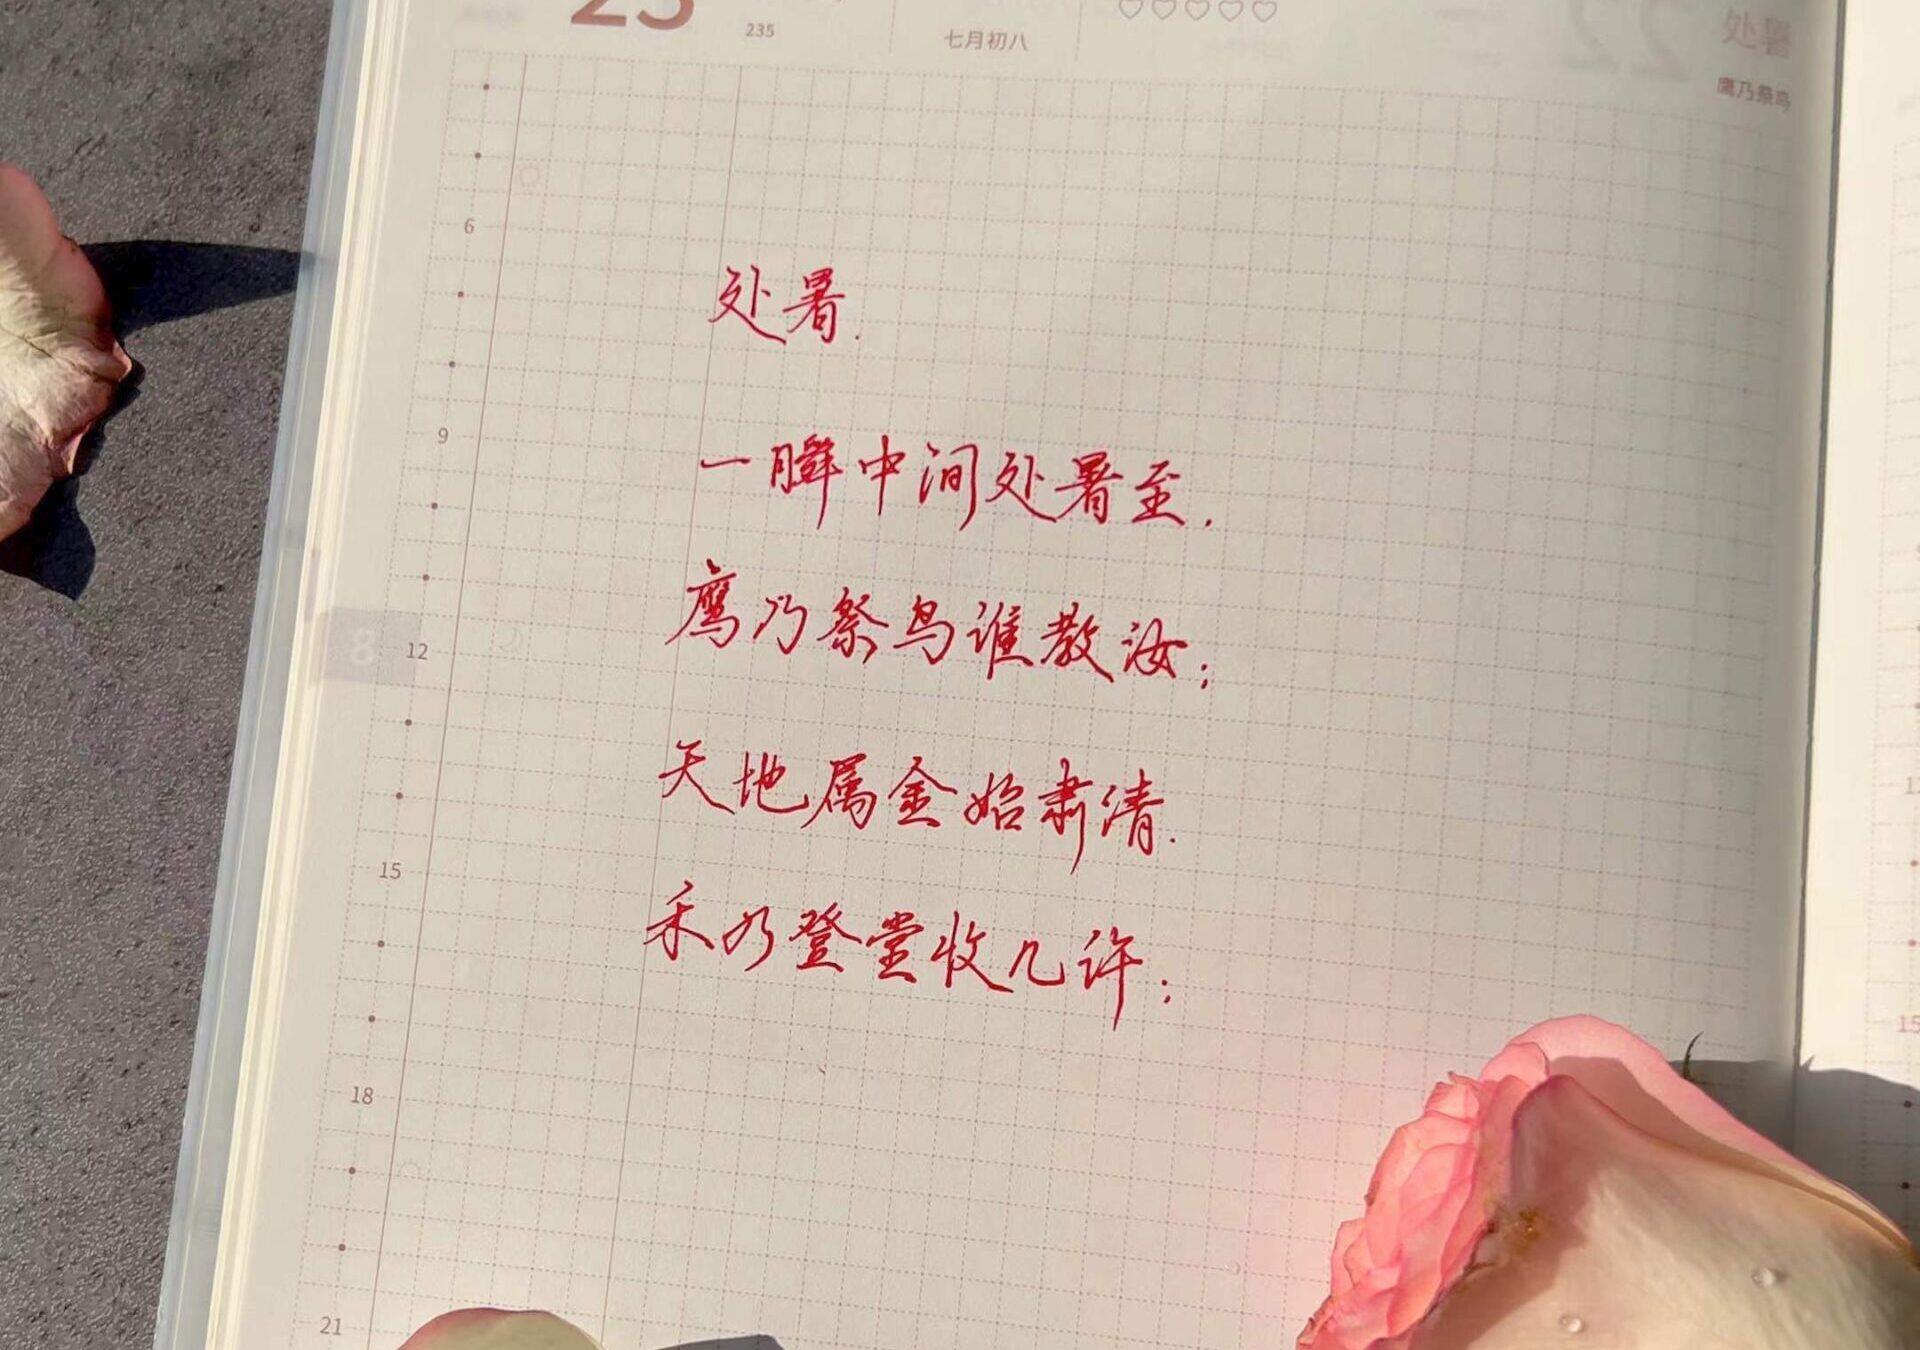 23
235
七月初八
处暑
鹰乃祭鸟
6
处暑.
9
一瞬中间处暑至.
鹰乃祭鸟谁教汝;
8
12
天地属金始肃清.
15
禾乃登堂收几许;
15
18
21